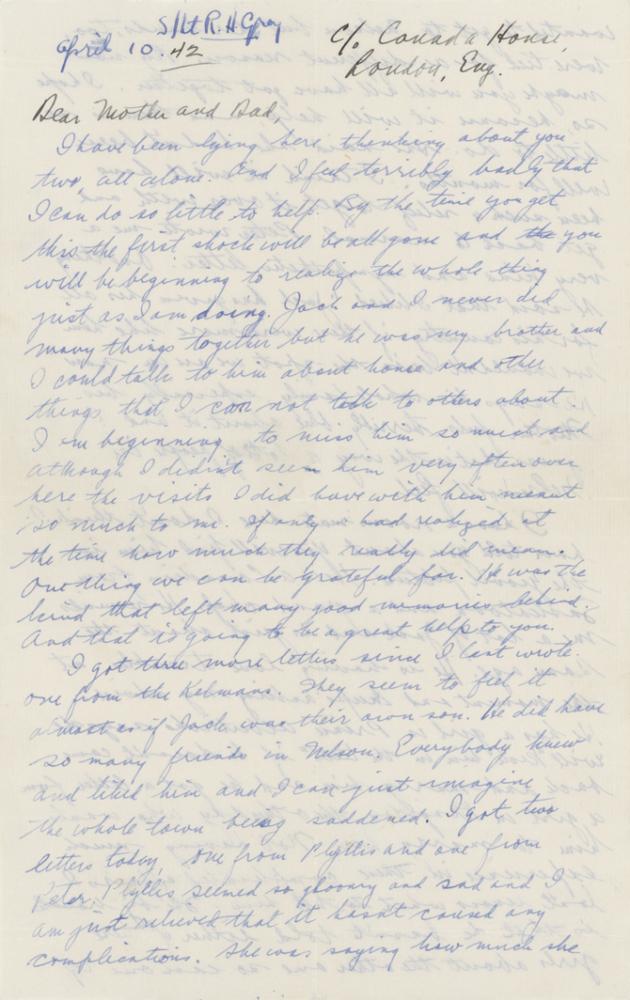 S/Lt R. H Gray
April 10. 42
c/o Canada House,
London, Eng.
Dear Mother and Dad,
I have been lying here thinking about you
two, all alone. And I feel terribly badly that
I can do so little to help. By the time you get
this the first shock will be all gone and the you
will be beginning to realize the whole thing
just as I am doing. Jack and I never did
many things together but he was my brother and
I could talk to him about home and other
things that I can not talk to others about.
I am beginning to miss him so much and
although I didn't seem him very often over
here the visits I did have with him meant
so much to me. If only we had realized at
the time how much they really did mean.
One thing we can be grateful for. He was the
kind that left many good memories behind.
And that is going to be a great help to you.
I got three more letters since I last wrote.
one from the Kelmans. They seem to feel it
almost as if Jack was their own son. He did have
so many friends in Nelson. Everybody knew
and liked him and I can just imagine
the whole town being saddened. I got two
letters today, one from Phyllis and one from
Peter. Phyllis seemed so gloomy and sad and I
am just relieved that it hasnt caused any
complications. She was saying how much she